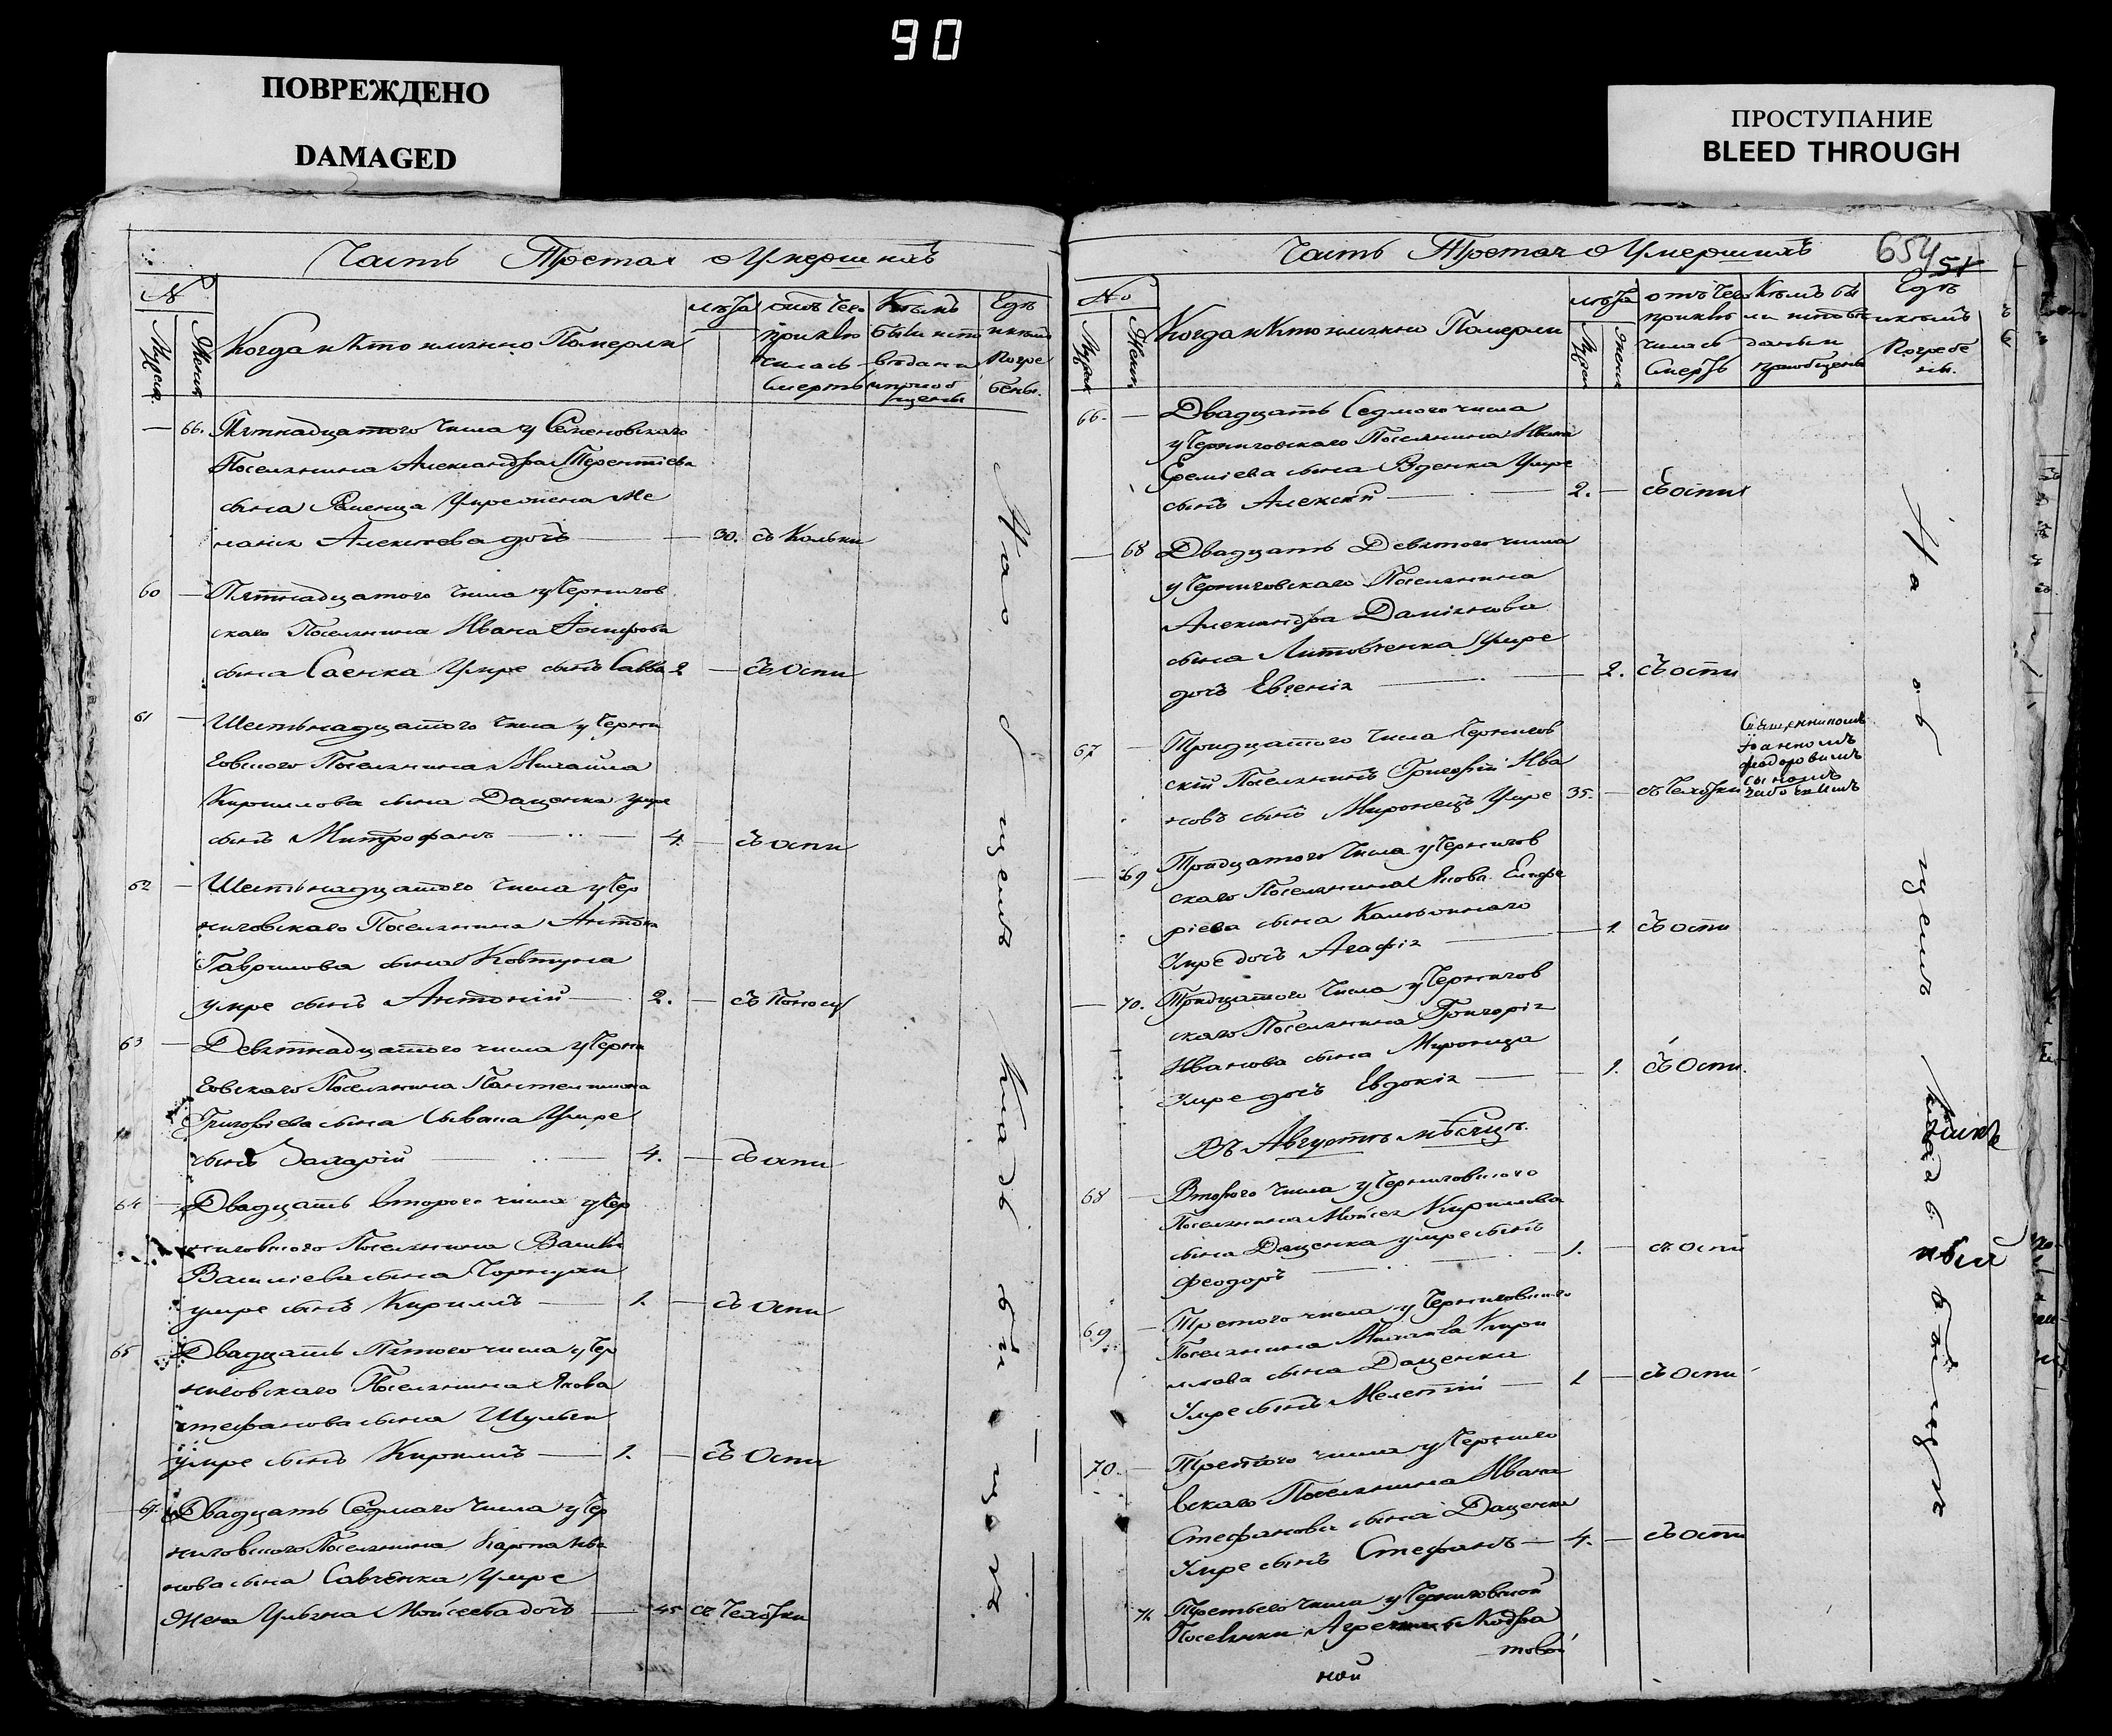 90
ПОВРЕЖДЕНО
DAMAGED
ПРОСТУПАНИЕ
BLEED THROUGH
Часть Третая о Умершихъ
№
Мужеск.
Женск.
Когда и Кто имянно Померли
лѣта
отъ чего
приклю
чилась
смерть
Кѣмъ
были исп
овѣданы
и приоб
щены
Гдѣ
и кѣмъ
Погре
бены.
66. Пятнадцатого числа у Семеновскаго
Поселянина Александра Терентіева
сына умре жена Ме
ланія Алексѣева дочь 30. съ Кольки
60 Пятнадцатого числа у Чернигов
скаго Поселянина Ивана Іосифова
сына Саенка Умре сынъ Савва 2 съ Оспи
61 Шестьнадцатого числа у Черни
говского Поселянина Михайла
Кириллова сына Даценка умре
сынъ Митрофанъ 4. съ оспи
62 Шестьнадцатого числа у Чер
ниговскаго Поселянина Антона
Гаврилова сына Ковтуна
умре сынъ Антоній 2. съ Поносу
63 Девятнадцатого числа у Черни
говскаго Поселянина Пантелимона
Григоріева сына Умре
сынъ Захарій 4. съ оспи
64 Двадцать второго числа у Чер
ниговского Поселянина Василія
Василіева сына
умре сынъ Кириллъ 1. съ Оспи
65 Двадцать Пятого числа у Чер
ниговскаго Поселянина Якова
стефанова сына Шульги
умре сынъ Кириллъ 1. съ Оспи
67. Двадцать Седмаго числа у Чер
ниговского Поселянина Карпа Ива
нова сына Савченка Умре
жена Ульяна Мойсеева дочь 45 съ Чехотки
На общемъ кладбищѣ
Часть Третая о Умершихъ
654
51
№
Мужск
Женск
Когда и Кто имянно Померли
лѣта
Мужск
Женск
отъ чего
приклю
чилась
Смерть
Кѣмъ бы
ли исповѣ
даны и
приобщены
Гдѣ
и кѣмъ
Погребе
ны.
66. Двадцать Седмого числа
у Черниговскаго Поселянина Ивана
Еремеіева сына Умре
сынъ Алексѣй 2. съ оспи
68 Двадцать Девятого числа
у Черниговскаго Поселянина
Александра Даміанова
сына Литовченка Умре
дочь Евгенія 2. съ оспи
67 Тридцатого числа Чернигов
скій Поселянинъ Григорій Ива
новъ сынъ Миронецъ Умре 35. съ Чехотки
Священникомъ
Іоанномъ
Феодоровимъ
сыномъ
69 Тридцатого числа у Чернигов
скаго Поселянина Якова
сына
Умре дочь Агафія 1. съ оспи
70. Тридцатого числа у Чернигов
скаго Поселянина Григорія
Иванова сына Миронца
Умре дочь Евдокія 1. съ Оспи.
Въ Августѣ мѣсяцѣ.
68 Второго числа у Черниговского
Поселянина Мойсея Кирилова
сына Даценка умре сынъ
Феодоръ 1. съ оспи
69 Третого числа у Черниговского
Поселянина Михаила Кири
лова сына Даценка
Умре сынъ Мелетій 1 съ Оспи
70. Третього числа у Черниго
вскаго Поселянина Ивана
Стефанова сына Даценка
Умре сынъ Стефанъ 4. съ оспи
71. Третьего числа у Черниговской
Поселянки
ной
На общемъ кладбищѣ